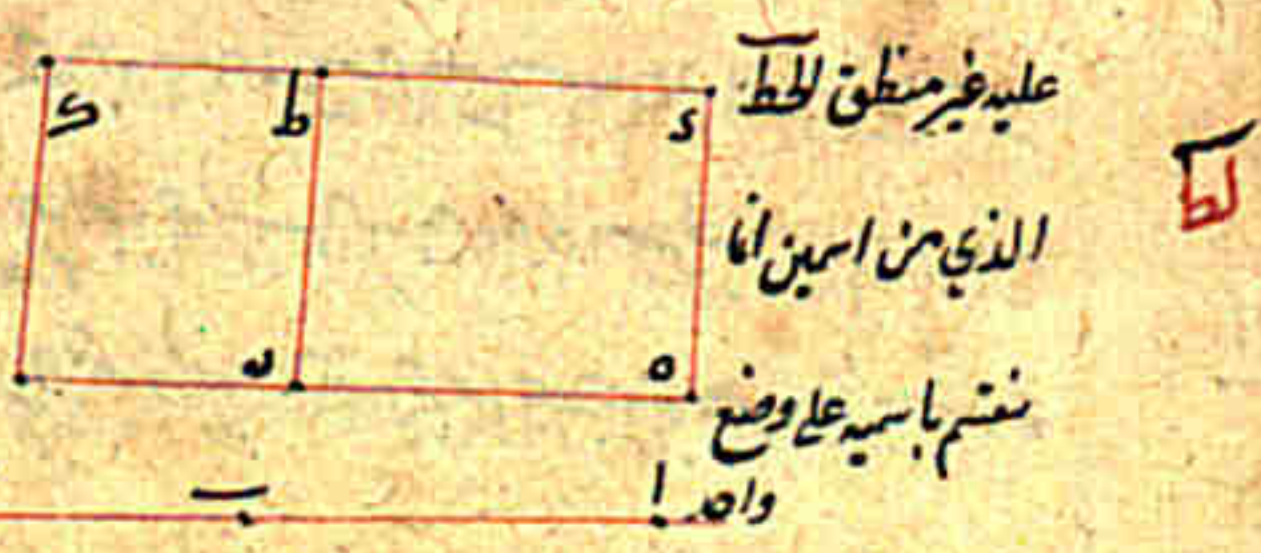 عليه غير منطق لط الخط
الذي من اسمين انما
ينقسم باسميه على وضع
واحد
لط
ك ط د
ه
ا ب